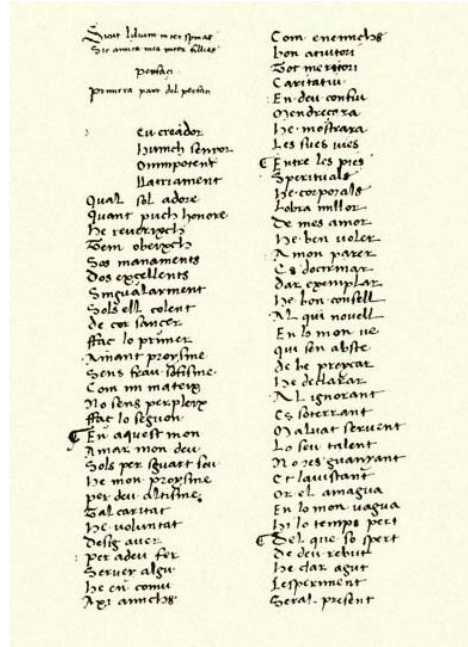 Sicut lilium inter spinas
Sic amica mea inter fillias
perfaci
Primera part del perfaci
eu creador
huinch senyor
Omnipotent
llauiament
Qual sol adore
Quant puch honore
He reverixch
Tem obeixch
Sos manaments
Dos excellents
Singularment
Sols ell colent
de cor sancer
ffac lo primer
Amant proysme
Sens frau sofisme
Com mi mateix
No sens perpleix
ffac lo segon
En aquest mon
Amar mon deu
Sols per sguart seu
He mon proysme
per deu altisme
Tal caritat
He voluntat
Desig aver
per a deu fer
Servey algu
He en comu
Axi amichs
Com enemichs
bon atuitori
Tot meritori
Caritatiu
En deu confiu
Mendreçara
He mostrara
Les sues vies
Entre les pies
Sperituals
He corporals
Lobra millor
De mes amor
He ben voler
A mon parer
Es doctrinar
dar exemplar
He bon consell
Al qui novell
En lo mon ve
qui sen abste
de be provocar
He declarar
AL ignorant
Es soterrant
Malvat servent
Lo seu talent
No res guanyant
Et lauistant
Or el amagua
En lo mon vagua
Hi lo temps pert
Del que so spert
De deu rebut
He clar agut
Lesperiment
Seral present